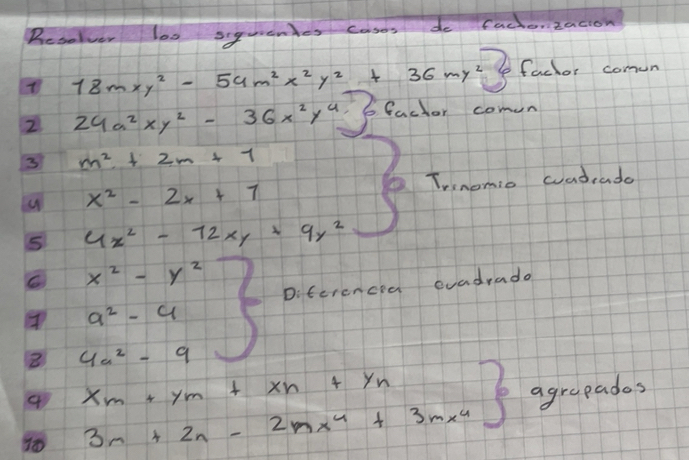 Resolver los siguientes casos de factorización
1 18mxy² - 54m²x²y² + 36my² } factor comun
2 24a²xy² - 36x²y⁴ } factor comun
3 m² + 2m + 1
4 x² - 2x + 1 } Trinomio cuadrado
5 4x² - 12xy + 9y²
6 x² - y²
7 a² - 4 } Diferencia cuadrado
8 4a² - 9
9 xm + ym + xn + yn
10 3m + 2n - 2mx⁴ + 3mx⁴ } agrupados